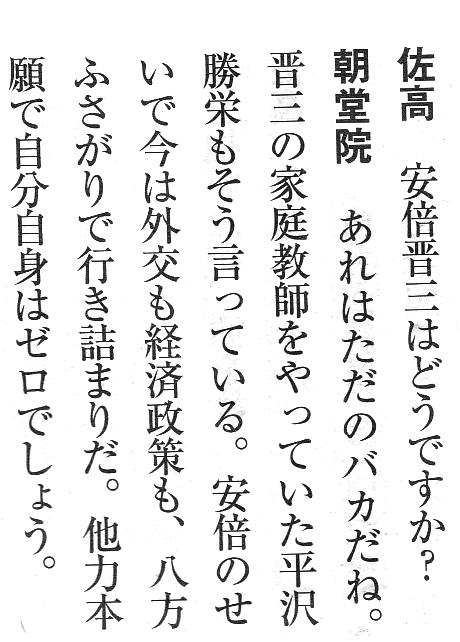 佐高　安倍晋三はどうですか?
朝堂院　あれはただのバカだね。
晋三の家庭教師をやっていた平沢
勝栄もそう言っている。安倍のせ
いで今は外交も経済政策も、八方
ふさがりで行き詰まりだ。他力本
願で自分自身はゼロでしょう。